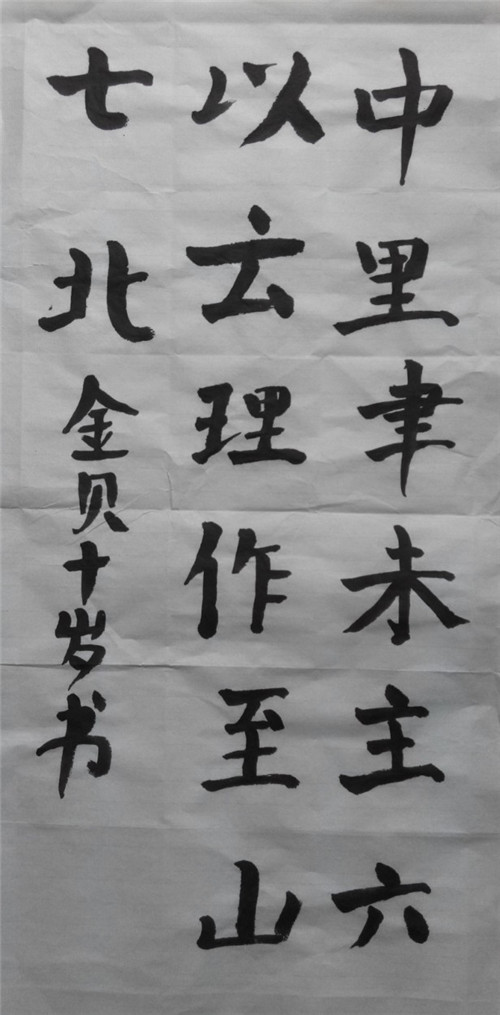 中里聿未主六
以云理作至山
七北
金贝十岁书